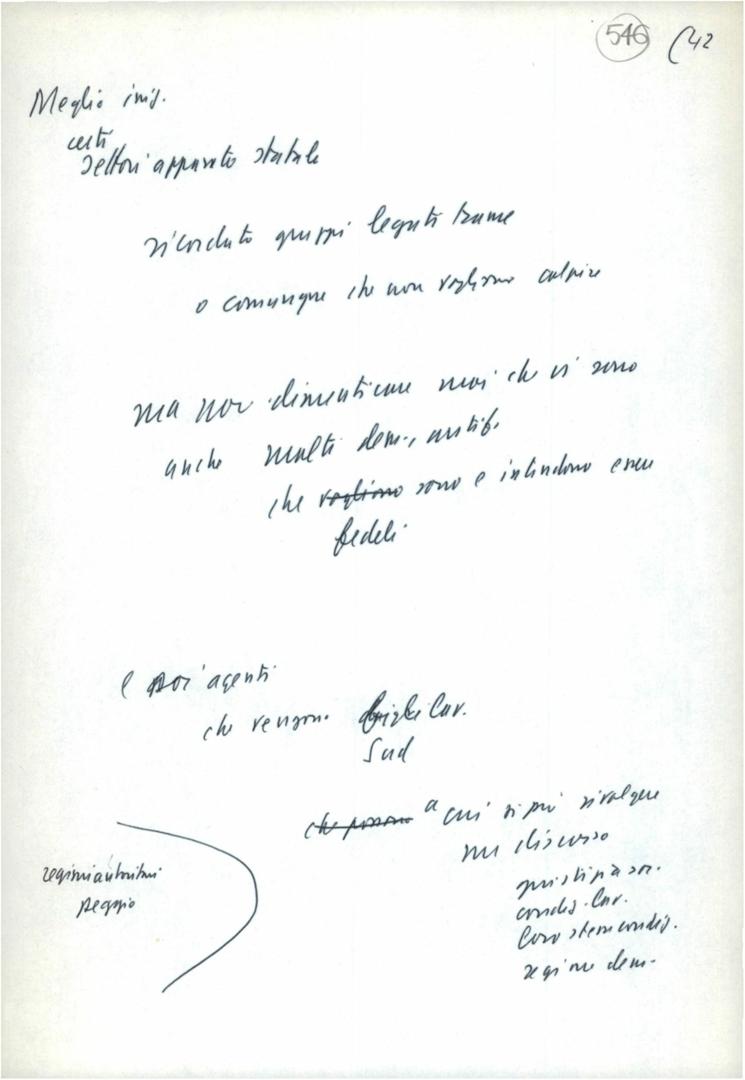 546 (42
Meglio inig.
certi
settori apparato statale
ricordato gruppi legati trame
o comunque che non vogliono colpire
ma non dimenticare mai che vi sono
anche molti dem., antif.
che vogliono sono e intendono essere
fedeli
e poi agenti
che vengono famiglie lav.
Sud
che possono a cui si può rivolgere
un discorso
giustizia soc.
condiz. lav.
loro stesse condiz.
regime dem.
regimi autoritari
peggio